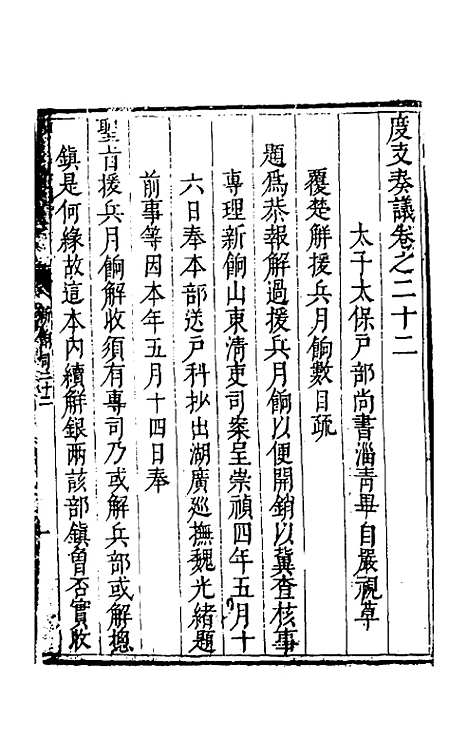 度支奏議卷之二十二
太子太保戶部尚書淄青畢自嚴視草
覆楚解援兵月餉數目疏
題爲恭報解過援兵月餉以便開銷以冀查核事
專理新餉山東清吏司案呈崇禎四年五月十
六日奉本部送戶科抄出湖廣巡撫魏光緒題
前事等因本年五月十四日奉
聖旨援兵月餉解收須有專司乃或解兵部或解總
鎮是何緣故這本內續解銀兩該部鎮曾否實收
新餉司二十二